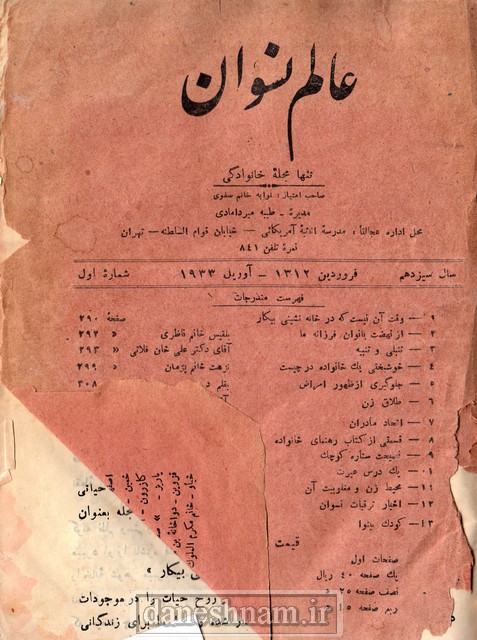 عالم نسوان
تنها مجله خانوادگی
صاحب امتیاز: نوابه خانم صفوی
مدیره - طیبه میردامادی
محل اداره عجالتاً: مدرسهٔ اناثیهٔ آمریکائی — خیابان قوام السلطنه — تهران
نمرهٔ تلفن ۸۴۱
سال سیزدهم فروردین ۱۳۱۲ - آوریل ۱۹۳۳ شمارهٔ اول
فهرست مندرجات
۱ — وقت آن نیست که در خانه نشینی بیکار صفحه ۲۹۰
۲ — از نهضت بانوان فرزانه ما بلقیس خانم ناظری » ۲۹۲
۳ — تنبلی و تنبیه آقای دکتر علی خان فلاتی » ۲۹۳
۴ — خوشبختی یک خانواده در چیست نزهت خانم پژمان » ۲۹۹
۵ — جلوگیری از ظهور امراض بقلم د ۳۰۸
۶ — طلاق زن
۷ — اتحاد مادران
۸ — قسمتی از کتاب رهنمای خانواده
۹ — نصیحت ستاره کوچک
۱۰ — یک درس عبرت
۱۱ — محیط زن و مغلوبیت آن
۱۲ — اخبار ترقیات نسوان
۱۳ — کودک بینوا
قیمت
صفحات اول
یک صفحه ۴۰ ریال
نصف صفحه ۲۵
ربع صفحه ۱۵
حیاتی
جله بعنوان
بیکار»
روح حیات را در موجودات
برای زندگانی
خانم مکرم الملوک
قزوین - دواخانه
کازرون
خمین
daneshnam.ir